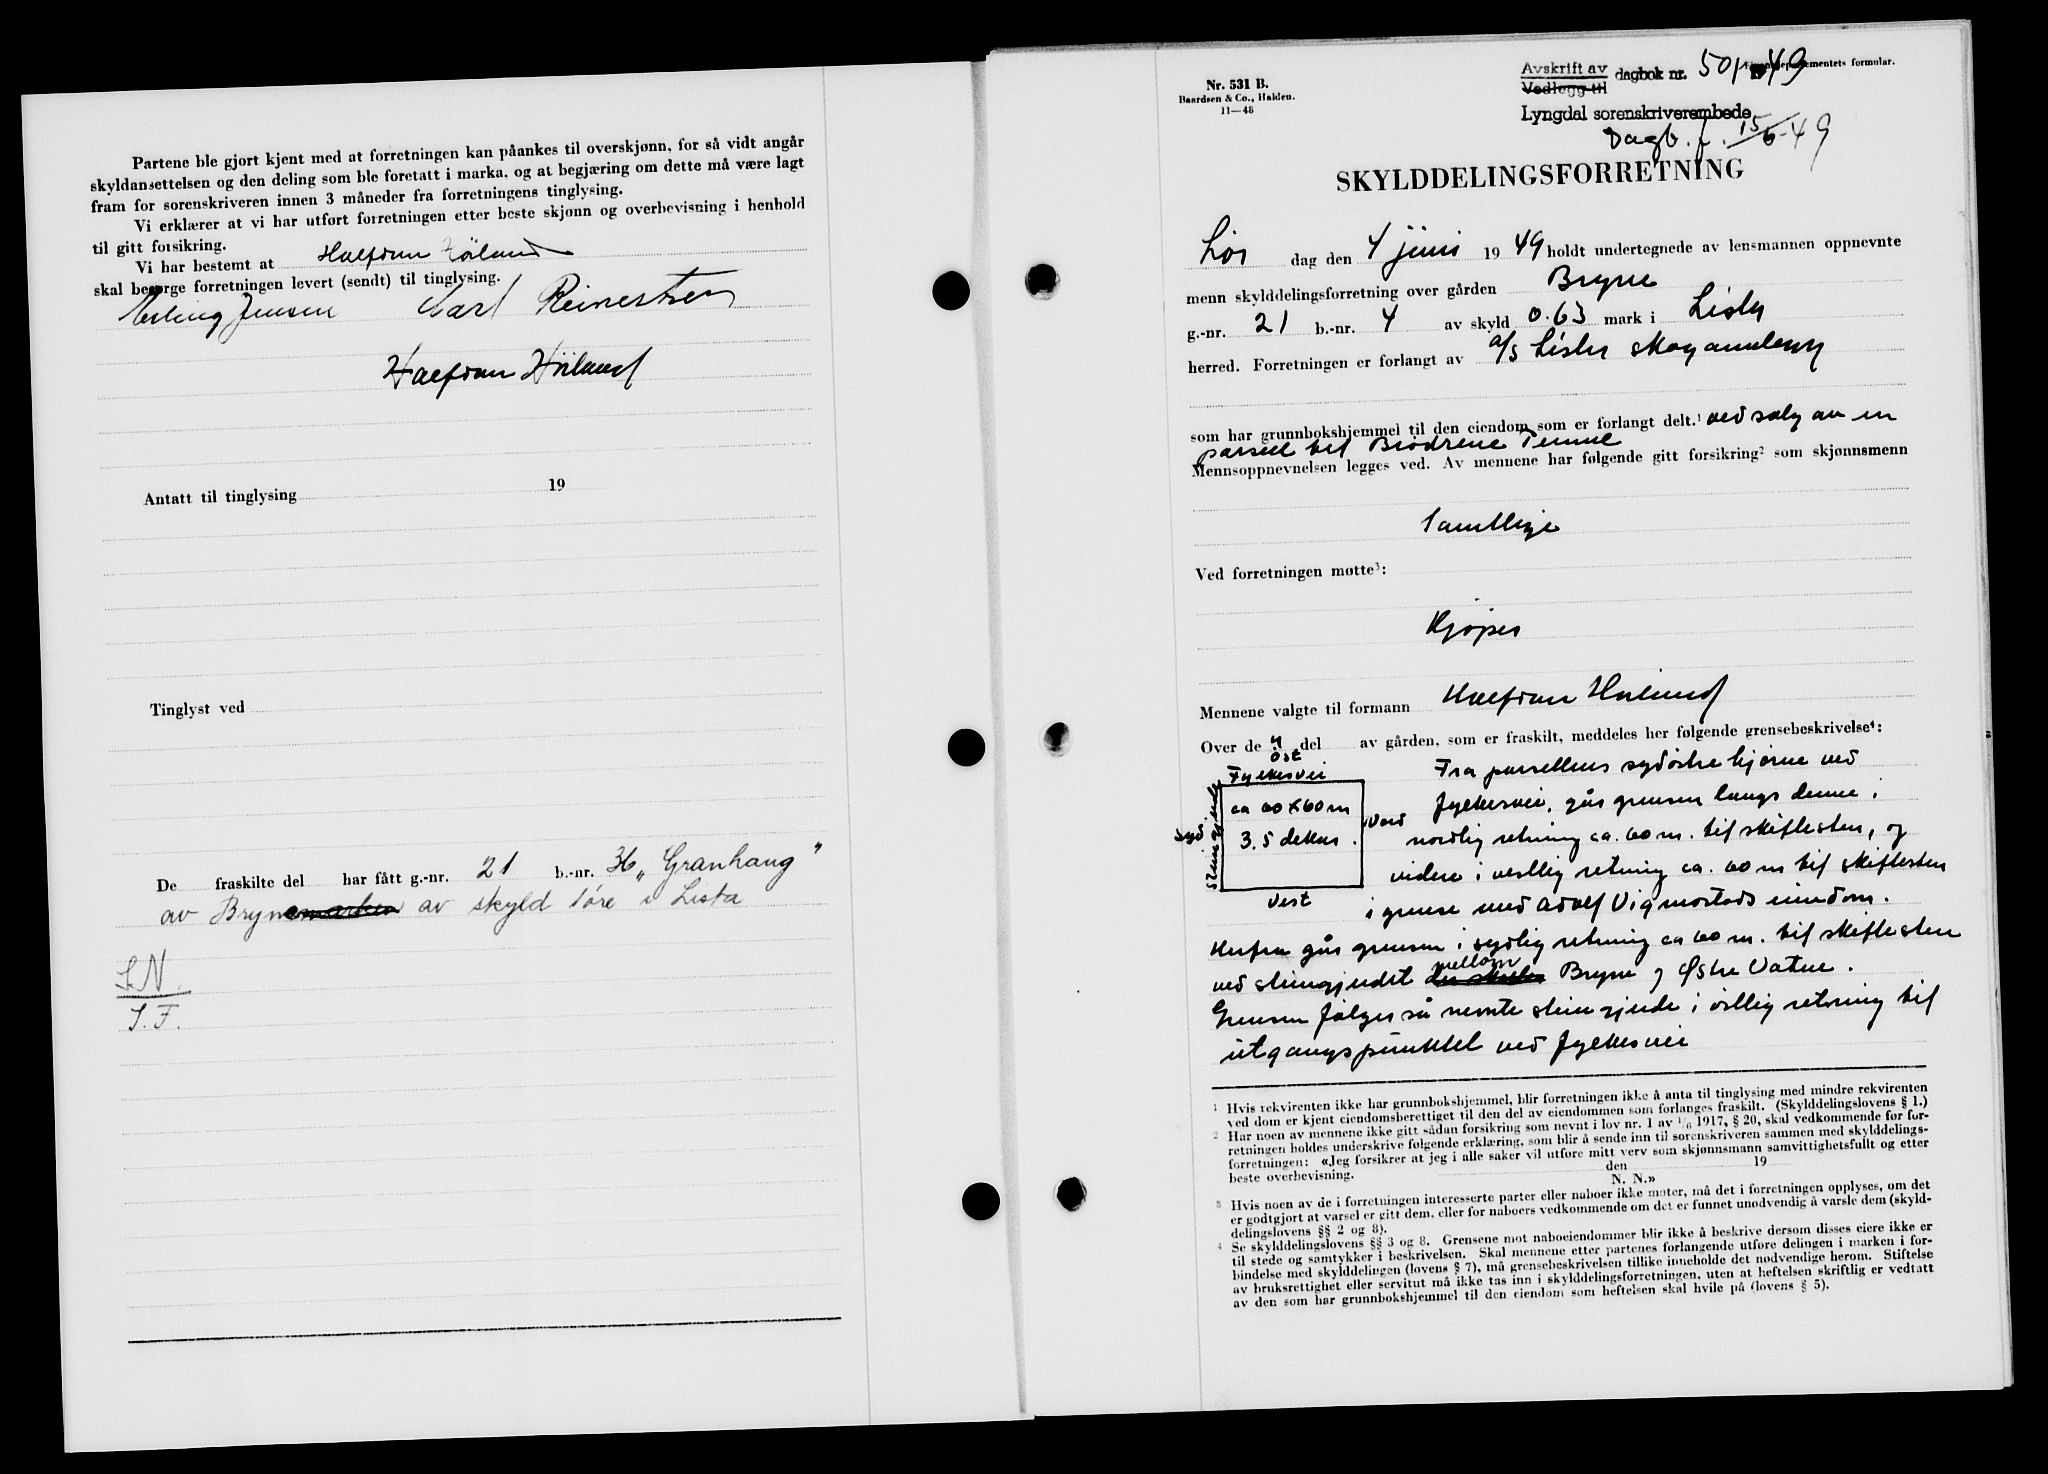 Partene ble gjort kjent med at forretningen kan påankes til overskjønn, for så vidt angår
skyldansettelsen og den deling som ble foretatt i marka, og at begjæring om dette må være lagt
fram for sorenskriveren innen 3 måneder fra forretningens tinglysing.
Vi erklærer at vi har utført forretningen etter beste skjønn og overbevisning i henhold
til gitt forsikring.
Vi har bestemt at Halfdan Höland
skal besørge forretningen levert (sendt) til tinglysing.
Erling Jensen Carl Reinertsen
Halfdan Höiland
Antatt til tinglysing 19
Tinglyst ved
De fraskilte del har fått g.-nr. 21 b.-nr. 36 „Granhaug"
av Bryne av skyld 1 øre i Lista
S.N.
S.F.
Nr. 531 B.
Baardsen & Co., Halden.
11—48
Avskrift av
Vedlegg til
dagbok nr. 501 49
Lyngdal sorenskriverembede
Dagb. f. 15/6-49
SKYLDDELINGSFORRETNING
Lør dag den 4 juni 1949 holdt undertegnede av lensmannen oppnevnte
menn skylddelingsforretning over gården Bryne
g.-nr. 21 b.-nr. 4 av skyld 0.63 mark i Lista
herred. Forretningen er forlangt av A/S Lista skoganlegg
som har grunnbokshjemmel til den eiendom som er forlangt delt.¹ ved salg av en
parsell til Brødrene
Mennsoppnevnelsen legges ved. Av mennene har følgende gitt forsikring² som skjønnsmenn
Samtlige
Ved forretningen møtte³:
Kjøper
Mennene valgte til formann Halfdan Höiland
Over de n del av gården, som er fraskilt, meddeles her følgende grensebeskrivelse⁴:
Øst
Fylkesvei
ca 60 x 60 m
3.5 dekar.
Syd.
Steingjerde
Nord
Vest
Fra parsellens sydøstre hjørne ved
fylkesvei, går grensen langs denne i
nordlig retning ca. 60 m. til skiftesten, og
videre i vestlig retning ca. 60 m til skiftesten
i grense med Adolf Vigmostads eiendom.
Herfra går grensen i sydlig retning ca 60 m. til skiftesten
ved steingjerdet mellom Bryne og Østre Vatne.
Grensen følger så nevnte steingjerde i østlig retning til
utgangspunktet ved fylkesvei
¹ Hvis rekvirenten ikke har grunnbokshjemmel, blir forretningen ikke å anta til tinglysing med mindre rekvirenten
ved dom er kjent eiendomsberettiget til den del av eiendommen som forlanges fraskilt. (Skylddelingslovens § 1.)
² Har noen av mennene ikke gitt sådan forsikring som nevnt i lov nr. 1 av 1/6 1917, § 20, skal vedkommende før for-
retningen holdes underskrive følgende erklæring, som blir å sende inn til sorenskriveren sammen med skylddelings-
forretningen: «Jeg forsikrer at jeg i alle saker vil utføre mitt verv som skjønnsmann samvittighetsfullt og etter
beste overbevisning. den 19
N. N.»
³ Hvis noen av de i forretningen interesserte parter eller naboer ikke møter, må det i forretningen opplyses, om det
er godtgjort at varsel er gitt dem, eller for naboers vedkommende om det er funnet unødvendig å varsle dem (skyld-
delingslovens §§ 2 og 8).
⁴ Se skylddelingslovens §§ 3 og 8. Grensene mot naboeiendommer blir ikke å beskrive dersom disses eiere ikke er
til stede og samtykker i beskrivelsen. Skal mennene etter partenes forlangende utføre delingen i marken i for-
bindelse med skylddelingen (lovens § 7), må grensebeskrivelsen tillike inneholde det nødvendige herom. Stiftelse
av bruksrettighet eller servitut må ikke tas inn i skylddelingsforretningen, uten at heftelsen skriftlig er vedtatt
av den som har grunnbokshjemmel til den eiendom som heftelsen skal hvile på (lovens § 5).